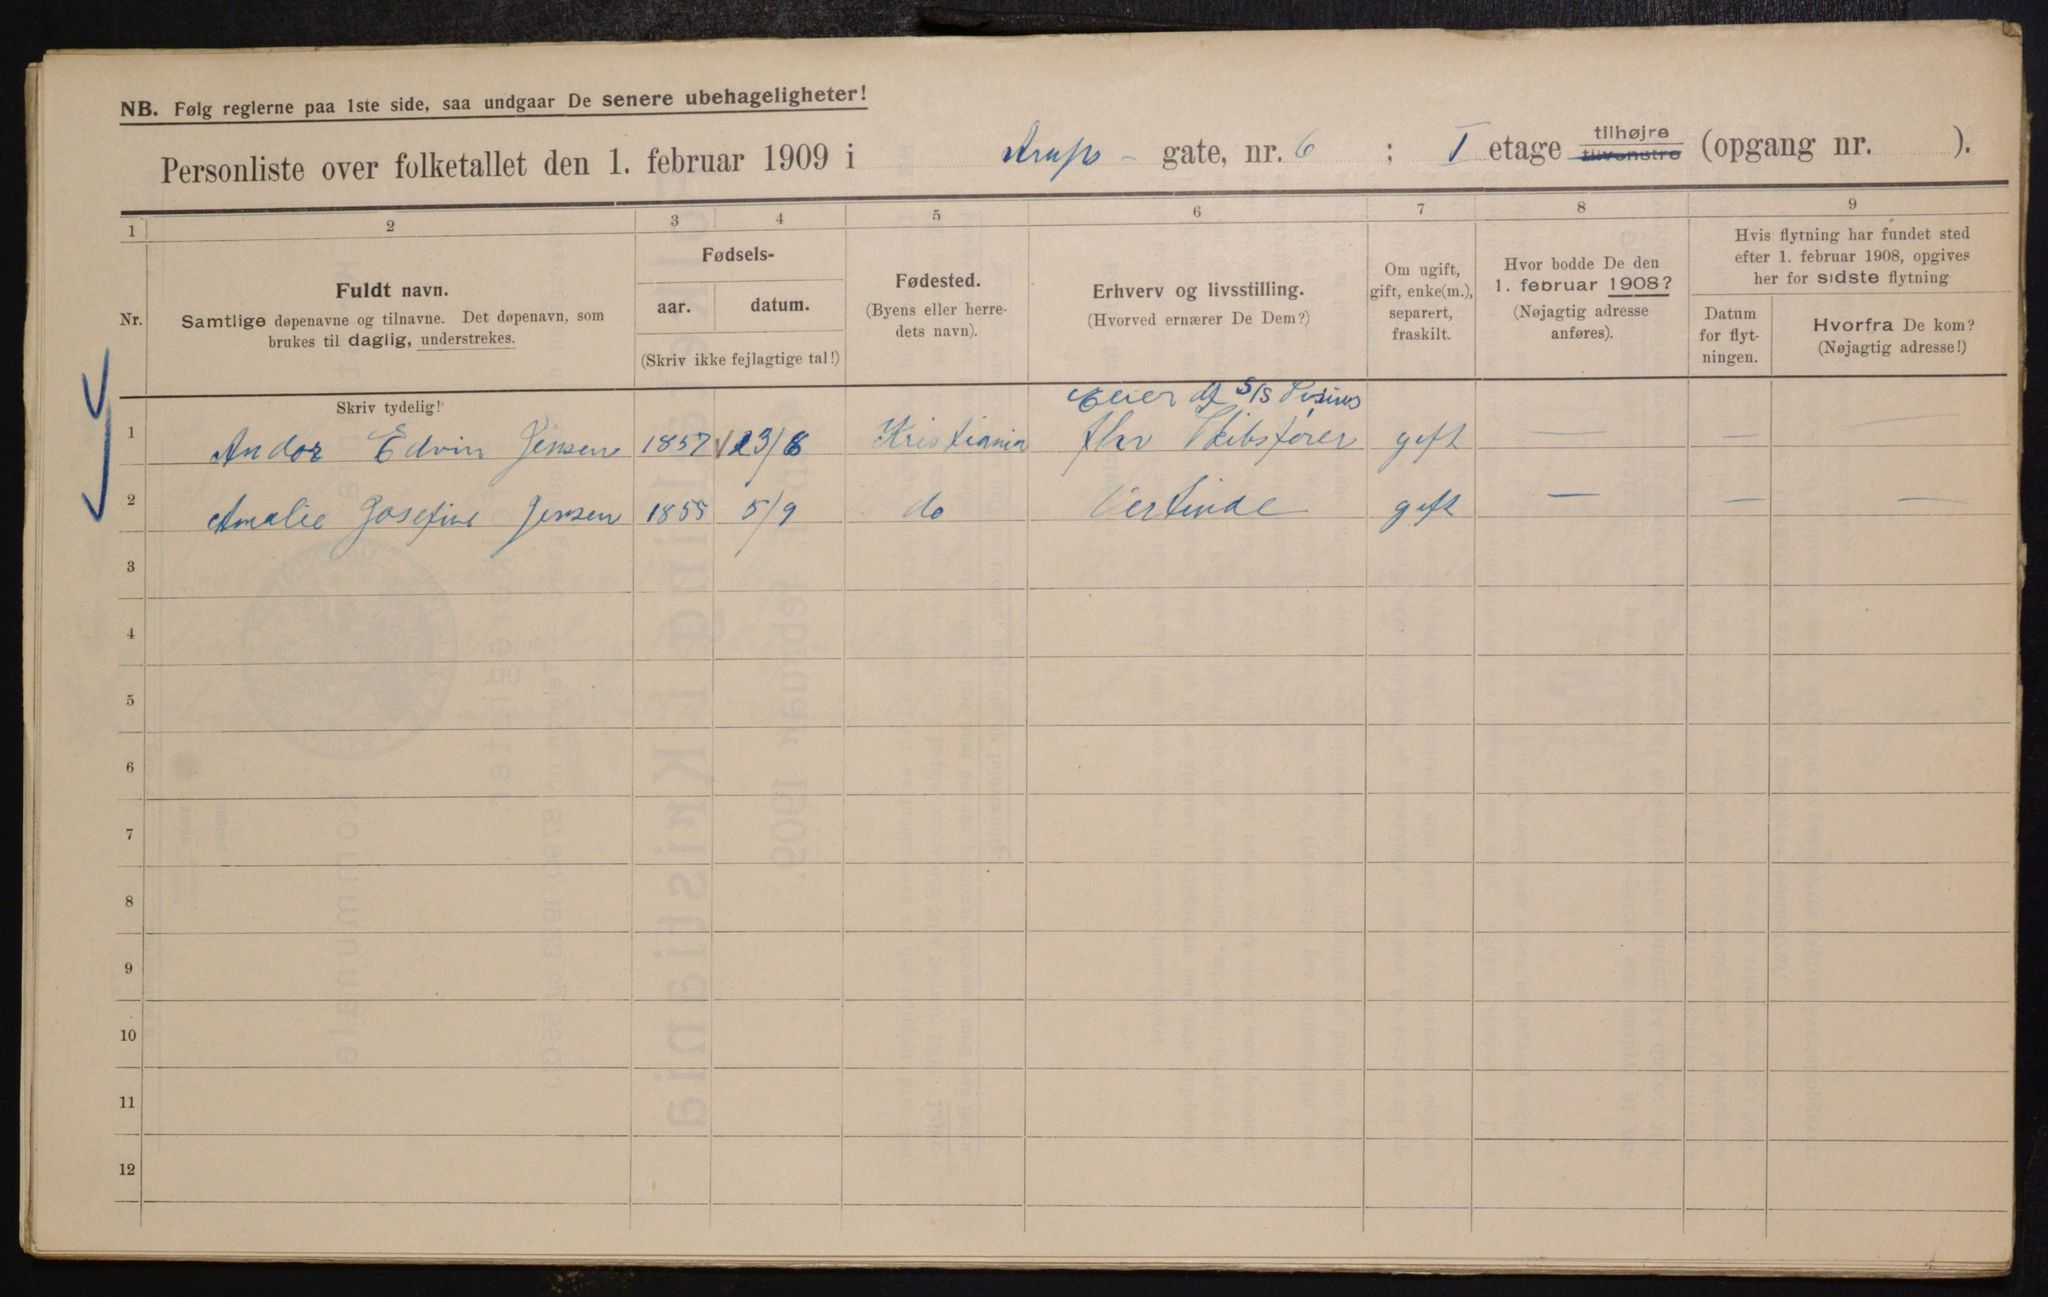 NB. Følg reglerne paa 1ste side, saa undgaar De senere ubehageligheter!
Personliste over folketallet den 1. februar 1909 i Arups - gate, nr. 6 ; I etage tilhøjre tilvenstre (opgang nr. ).
1 2 3 4 5 6 7 8 9
Nr.
Fuldt navn.
Samtlige døpenavne og tilnavne. Det døpenavn, som
brukes til daglig, understrekes.
Skriv tydelig!
Fødsels-
aar. datum.
(Skriv ikke fejlagtige tal!)
Fødested.
(Byens eller herre-
dets navn).
Erhverv og livsstilling.
(Hvorved ernærer De Dem?)
Om ugift,
gift, enke(m.),
separert,
fraskilt.
Hvor bodde De den
1. februar 1908?
(Nøjagtig adresse
anføres).
Hvis flytning har fundet sted
efter 1. februar 1908, opgives
her for sidste flytning
Datum
for flyt-
ningen.
Hvorfra De kom?
(Nøjagtig adresse!)
Eier af S/S
1 Andor Edvin Jensen 1857 23/8 Kristiania fhv Skibsfører gift — — —
2 Amalie Josefine Jensen 1855 5/9 do Vertinde gift — — —
3
4
5
6
7
8
9
10
11
12